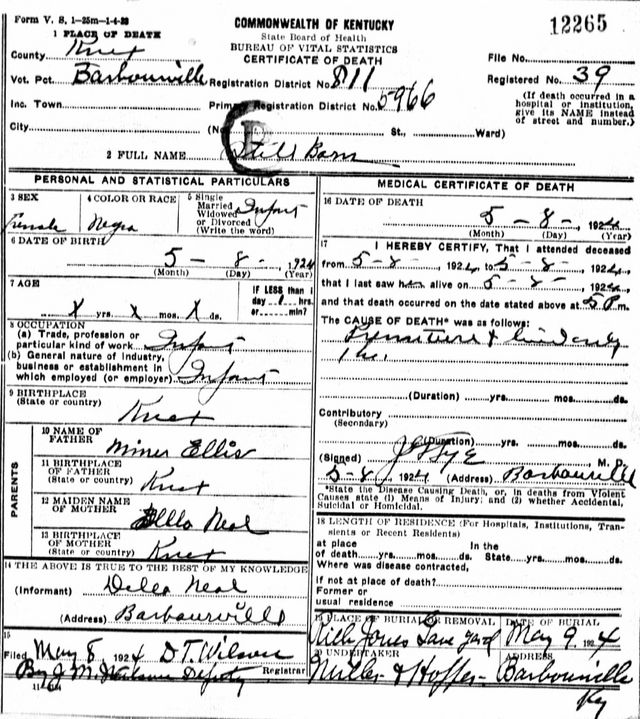 Form V. S. 1-25m-1-4-23
COMMONWEALTH OF KENTUCKY
State Board of Health
BUREAU OF VITAL STATISTICS
CERTIFICATE OF DEATH
12265
1 PLACE OF DEATH
County Knox
File No.
Vot. Pct. Barbourville Registration District No. 811
Registered No. 39
Inc. Town Primary Registration District No. 5966
(If death occurred in a hospital or institution, give its NAME instead of street and number.)
City (No. St., Ward)
2 FULL NAME Still Born
PERSONAL AND STATISTICAL PARTICULARS
3 SEX
Female
4 COLOR OR RACE
Negro
5 Single
Married
Widowed
or Divorced
(Write the word)
Infant
6 DATE OF BIRTH
5 - 8 - 1924
(Month) (Day) (Year)
7 AGE
X yrs. X mos. X ds.
IF LESS than 1
day hrs.
or min?
8 OCCUPATION
(a) Trade, profession or
particular kind of work Infant
(b) General nature of industry,
business or establishment in
which employed (or employer) Infant
9 BIRTHPLACE
(State or country)
Knox
PARENTS
10 NAME OF
FATHER
Miner Ellis
11 BIRTHPLACE
OF FATHER
(State or country)
Knox
12 MAIDEN NAME
OF MOTHER
Della Neal
13 BIRTHPLACE
OF MOTHER
(State or country)
Knox
14 THE ABOVE IS TRUE TO THE BEST OF MY KNOWLEDGE
(Informant) Della Neal
(Address) Barbourville
15
Filed May 8 1924 D T. Wilson
Registrar
By J. M. Deputy
MEDICAL CERTIFICATE OF DEATH
16 DATE OF DEATH
5 - 8 - 1924
(Month) (Day) (Year)
17 I HEREBY CERTIFY, That I attended deceased
from 5-8- 1924, to 5-8- 1924,
that I last saw h alive on 5-8- 1924,
and that death occurred on the date stated above at 5 P m.
The CAUSE OF DEATH* was as follows:
Premature &
(Duration) yrs. mos. ds.
Contributory
(Secondary)
(Duration) yrs. mos. ds.
(Signed) M. D.
5-8 1924 (Address) Barbourville
*State the Disease Causing Death, or, in deaths from Violent
Causes state (1) Means of Injury; and (2) whether Accidental,
Suicidal or Homicidal.
18 LENGTH OF RESIDENCE (For Hospitals, Institutions, Tran-
sients or Recent Residents)
at place In the
of death yrs. mos. ds. State yrs. mos. ds.
Where was disease contracted,
if not at place of death?
Former or
usual residence
19 PLACE OF BURIAL OR REMOVAL
Jones Grave yard
DATE OF BURIAL
May 9 1924
20 UNDERTAKER
Miller & Hopper
ADDRESS
Barbourville
Ky